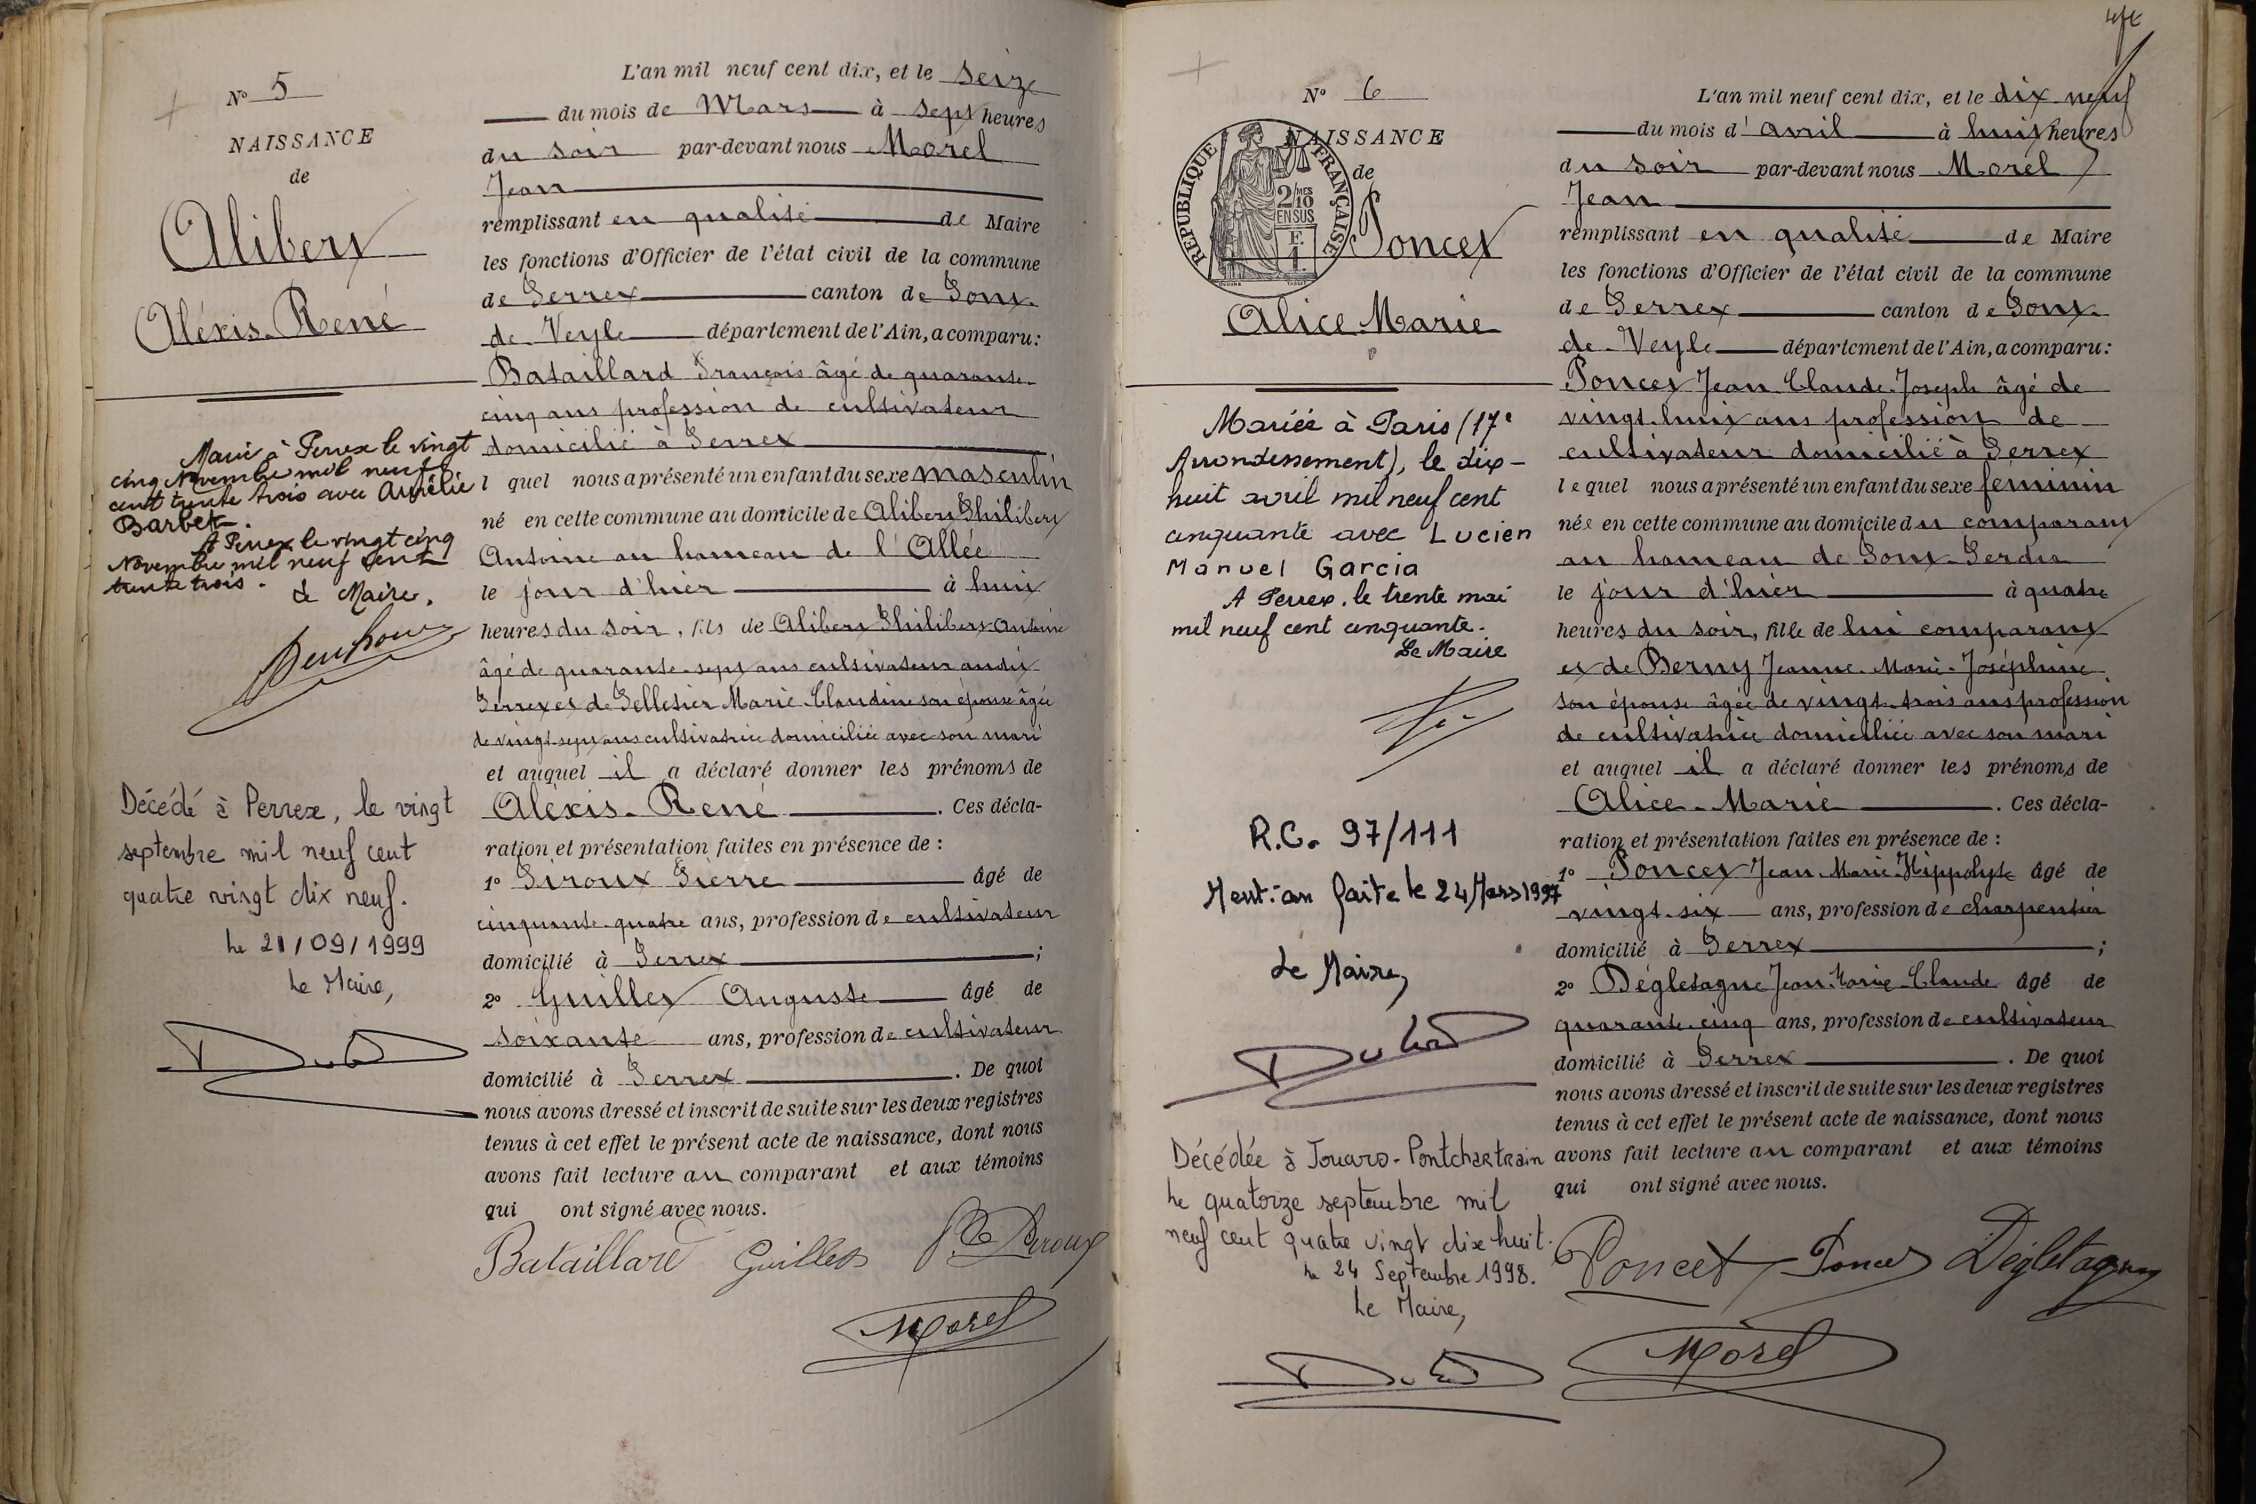 N° 5
NAISSANCE
de
Alibert
Aléxis-René
L'an mil neuf cent dix, et le seize
du mois de Mars à sept heures
du soir par-devant nous Morel
Jean
remplissant en qualité de Maire
les fonctions d'Officier de l'état civil de la commune
de Perrex canton de Pont-
de-Veyle département de l'Ain, a comparu:
Bataillard François âgé de quarante-
cinq ans profession de cultivateur
domicilié à Perrex
l quel nous a présenté un enfant du sexe masculin
né en cette commune au domicile de Alibert Philibert
Antoine au hameau de l'Allée
le jour d'hier à huit
heures du soir, fils de Alibert Philibert-Antoine
âgé de quarante-sept ans cultivateur audit
Perrex et de Pelletier Marie-Claudine son épouse âgée
de vingt-sept ans cultivatrice domiciliée avec son mari
et auquel il a déclaré donner les prénoms de
Aléxis-René. Ces décla-
ration et présentation faites en présence de :
1° Piroux Pierre âgé de
cinquante-quatre ans, profession de cultivateur
domicilié à Perrex ;
2° Guillet Auguste âgé de
soixante ans, profession de cultivateur
domicilié à Perrex. De quoi
nous avons dressé et inscrit de suite sur les deux registres
tenus à cet effet le présent acte de naissance, dont nous
avons fait lecture au comparant et aux témoins
qui ont signé avec nous.
Bataillard Guillet Piroux
Morel
Marié à Perrex le vingt
cinq Novembre mil neuf
cent trente trois avec Aurélie
Barbet.
A Perrex le vingt cinq
Novembre mil neuf cent
trente trois.
Le Maire,
Décédé à Perrex, le vingt
septembre mil neuf cent
quatre vingt dix neuf.
Le 21/09/1999
Le Maire,
N° 6
NAISSANCE
de
RÉPUBLIQUE FRANÇAISE
2/10 MES
EN SUS
Poncet
Alice-Marie
L'an mil neuf cent dix, et le dix-neuf
du mois d'avril à huit heures
du soir par-devant nous Morel
Jean
remplissant en qualité de Maire
les fonctions d'Officier de l'état civil de la commune
de Perrex canton de Pont-
de-Veyle département de l'Ain, a comparu:
Poncet Jean-Claude-Joseph âgé de
vingt-huit ans profession de
cultivateur domicilié à Perrex
lequel nous a présenté un enfant du sexe feminin
née en cette commune au domicile du comparant
au hameau de Pont-Perdu
le jour d'hier à quatre
heures du soir, fille de lui comparant
et de Berny Jeanne-Marie-Joséphine
son épouse âgée de vingt-trois ans profession
de cultivatrice domiciliée avec son mari
et auquel il a déclaré donner les prénoms de
Alice-Marie. Ces décla-
ration et présentation faites en présence de :
1° Poncet Jean-Marie-Hippolyte âgé de
vingt-six ans, profession de charpentier
domicilié à Perrex ;
2° Dégletagne Jean-Marie-Claude âgé de
quarante-cinq ans, profession de cultivateur
domicilié à Perrex. De quoi
nous avons dressé et inscrit de suite sur les deux registres
tenus à cet effet le présent acte de naissance, dont nous
avons fait lecture au comparant et aux témoins
qui ont signé avec nous.
Poncet Poncet Dégletagne
Morel
Mariée à Paris (17e
Arrondissement), le dix-
huit avril mil neuf cent
cinquante avec Lucien
Manuel Garcia
A Perrex, le trente mai
mil neuf cent cinquante.
Le Maire
R.C. 97/111
Mention faite le 24 Mars 1997
Le Maire,
Décédée à Jouars-Pontchartrain
Le quatorze septembre mil
neuf cent quatre vingt dix huit.
Le 24 Septembre 1998.
Le Maire,